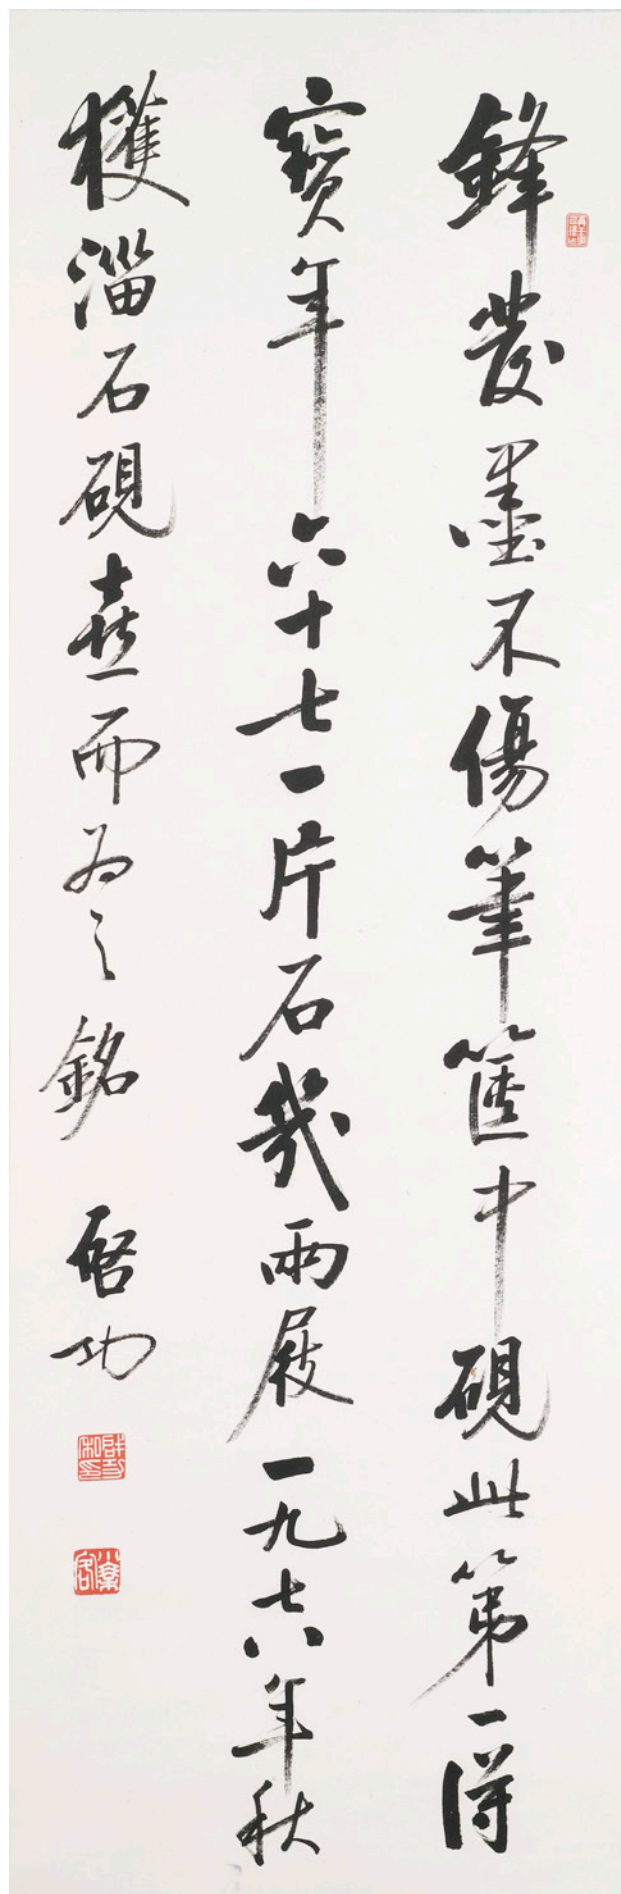 鋒發墨不傷筆篋中硯此第一得
寶年六十七一片石幾兩屐一九七六年秋
獲淄石硯喜而為之銘
啓功